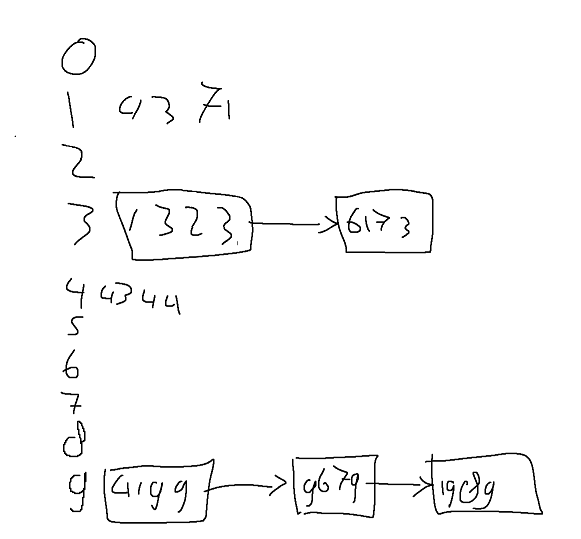 0
1 4371
2
3 1323 6173
4 4344
5
6
7
8
9 4199 9679 1989